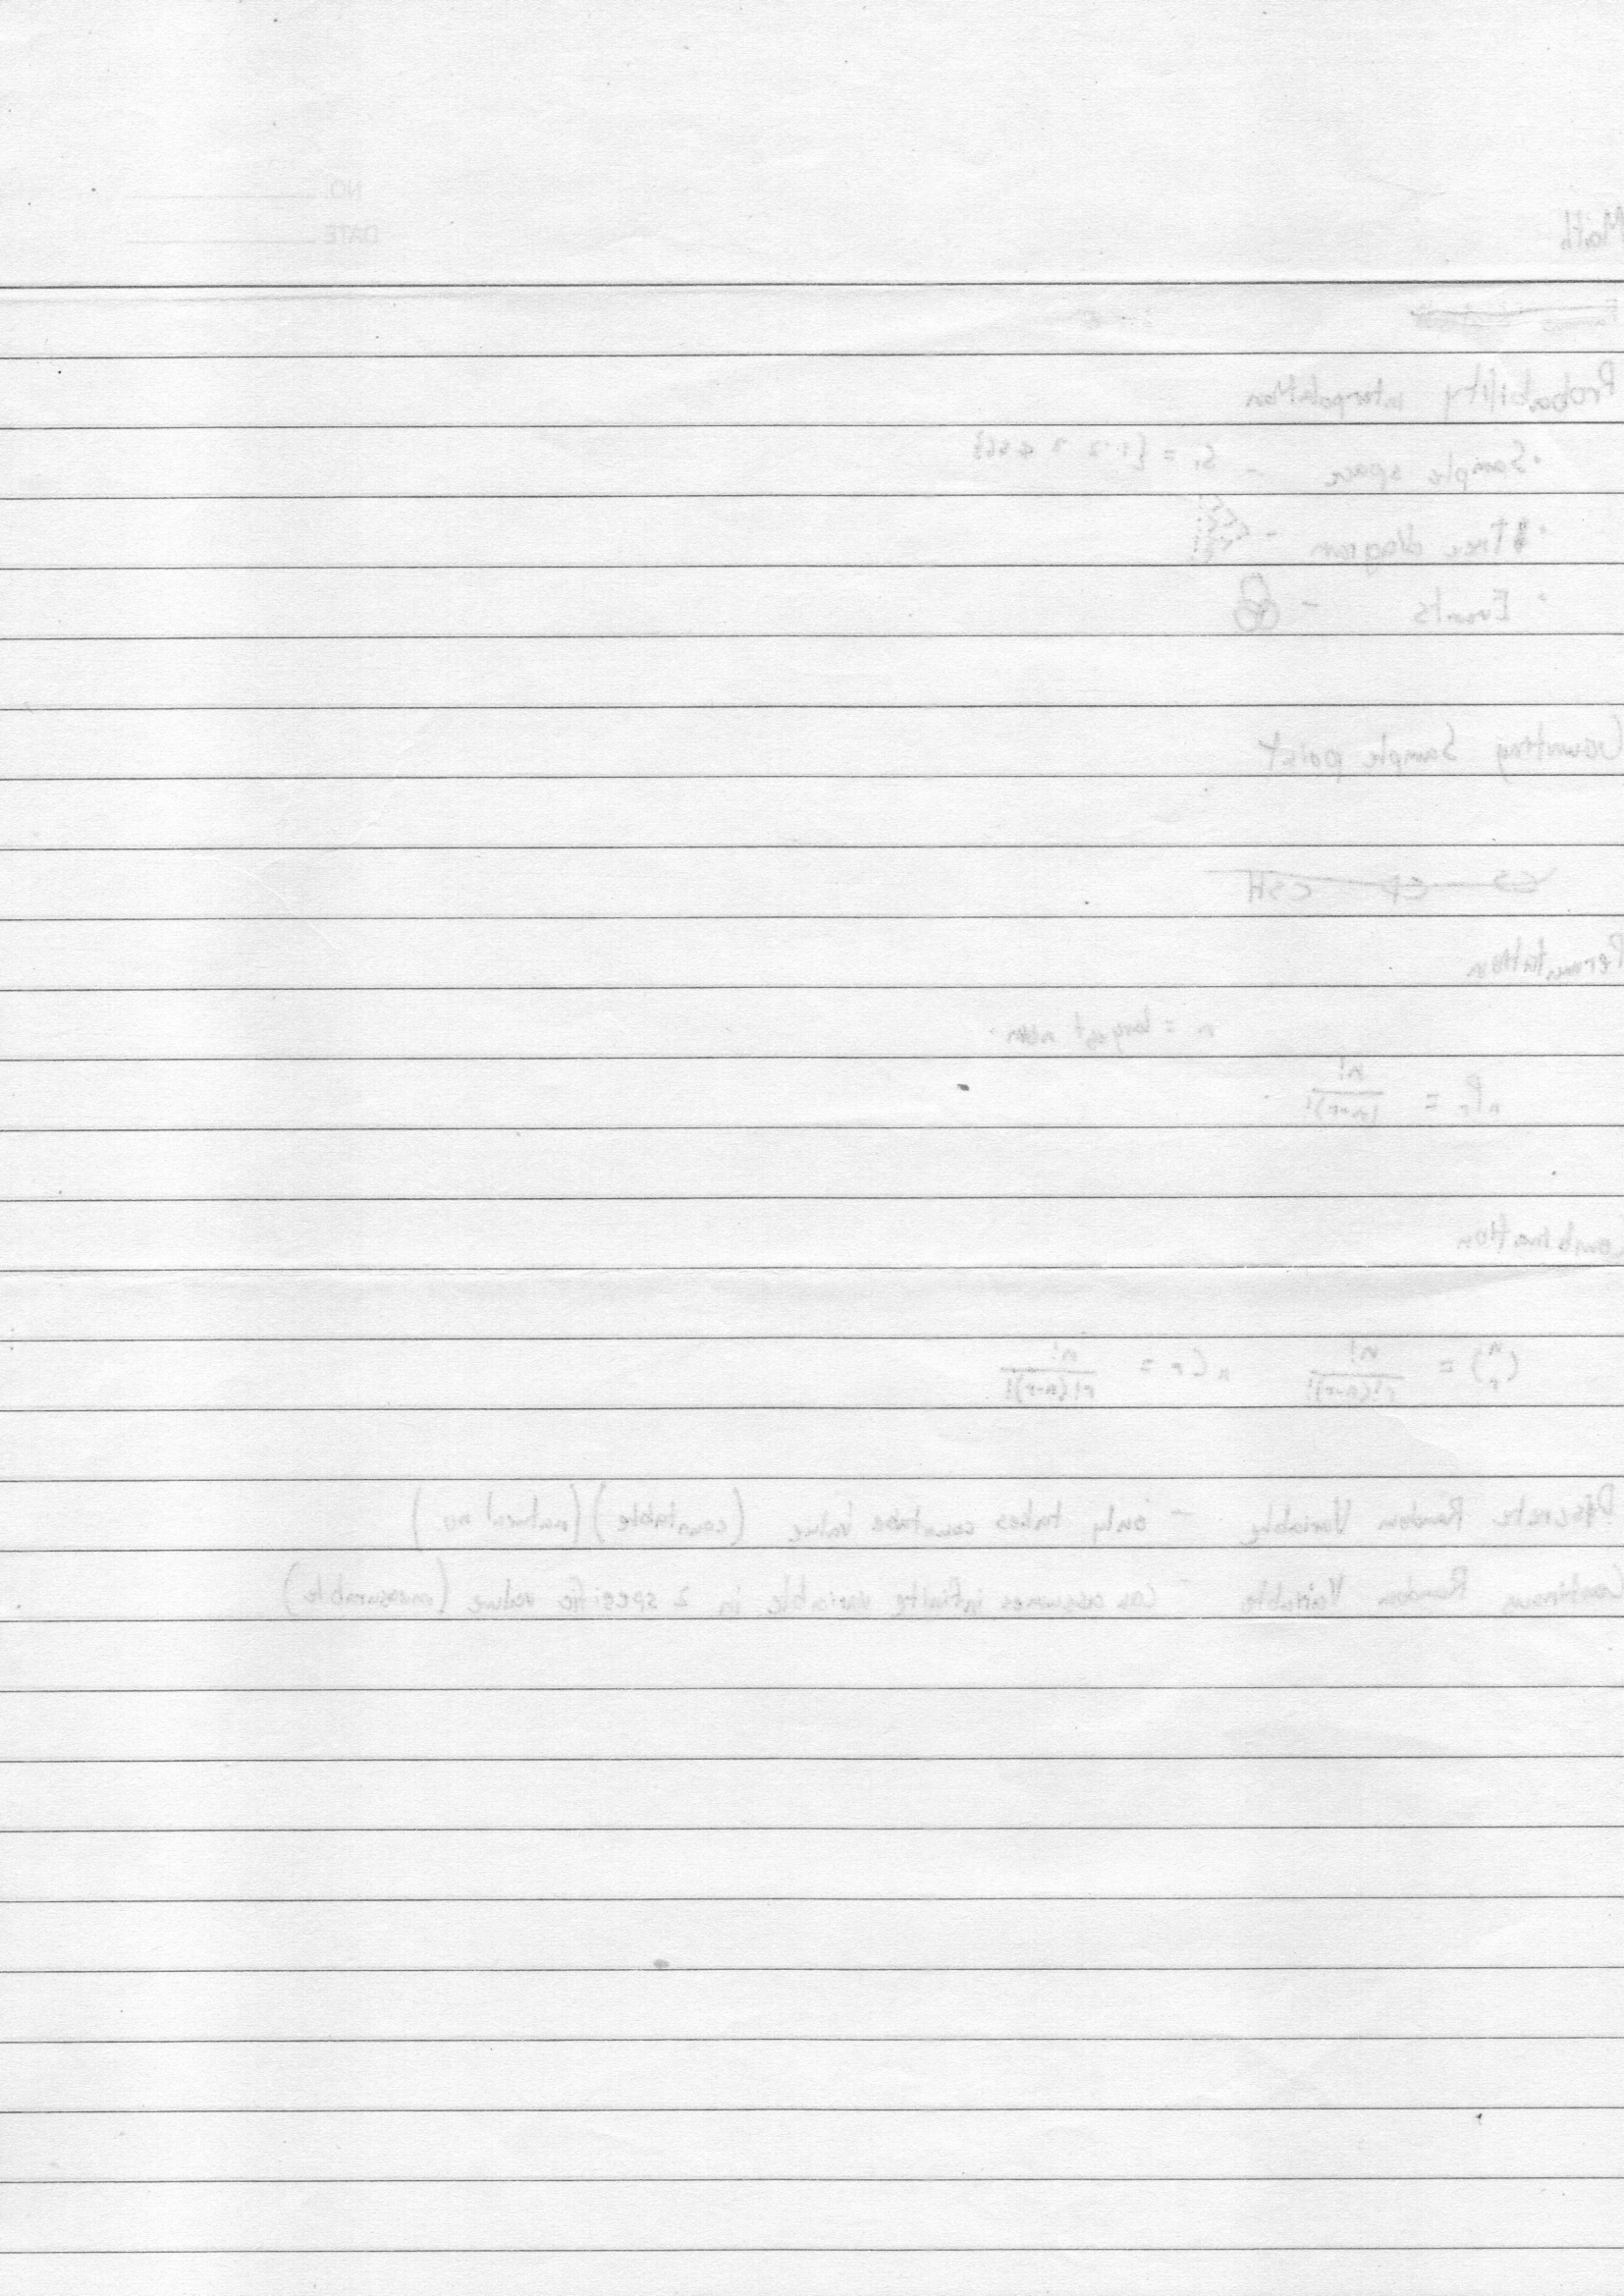 NO.
DATE
Math
Probability interpolation
• Sample space - S, = {1 2 3 4 5 6}
• Tree diagram -
• Events -
Counting Sample point
CS CP CSH
Permutation
n = largest num
nPr = n!/(n-r)!
Combination
(n r) = n!/r!(n-r)! nCr = n!/r!(n-r)!
Discrete Random Variable - only takes countabe value (countable) (natural no)
Continous Random Variable - can assumes infinite variable in 2 specific value (measurable)